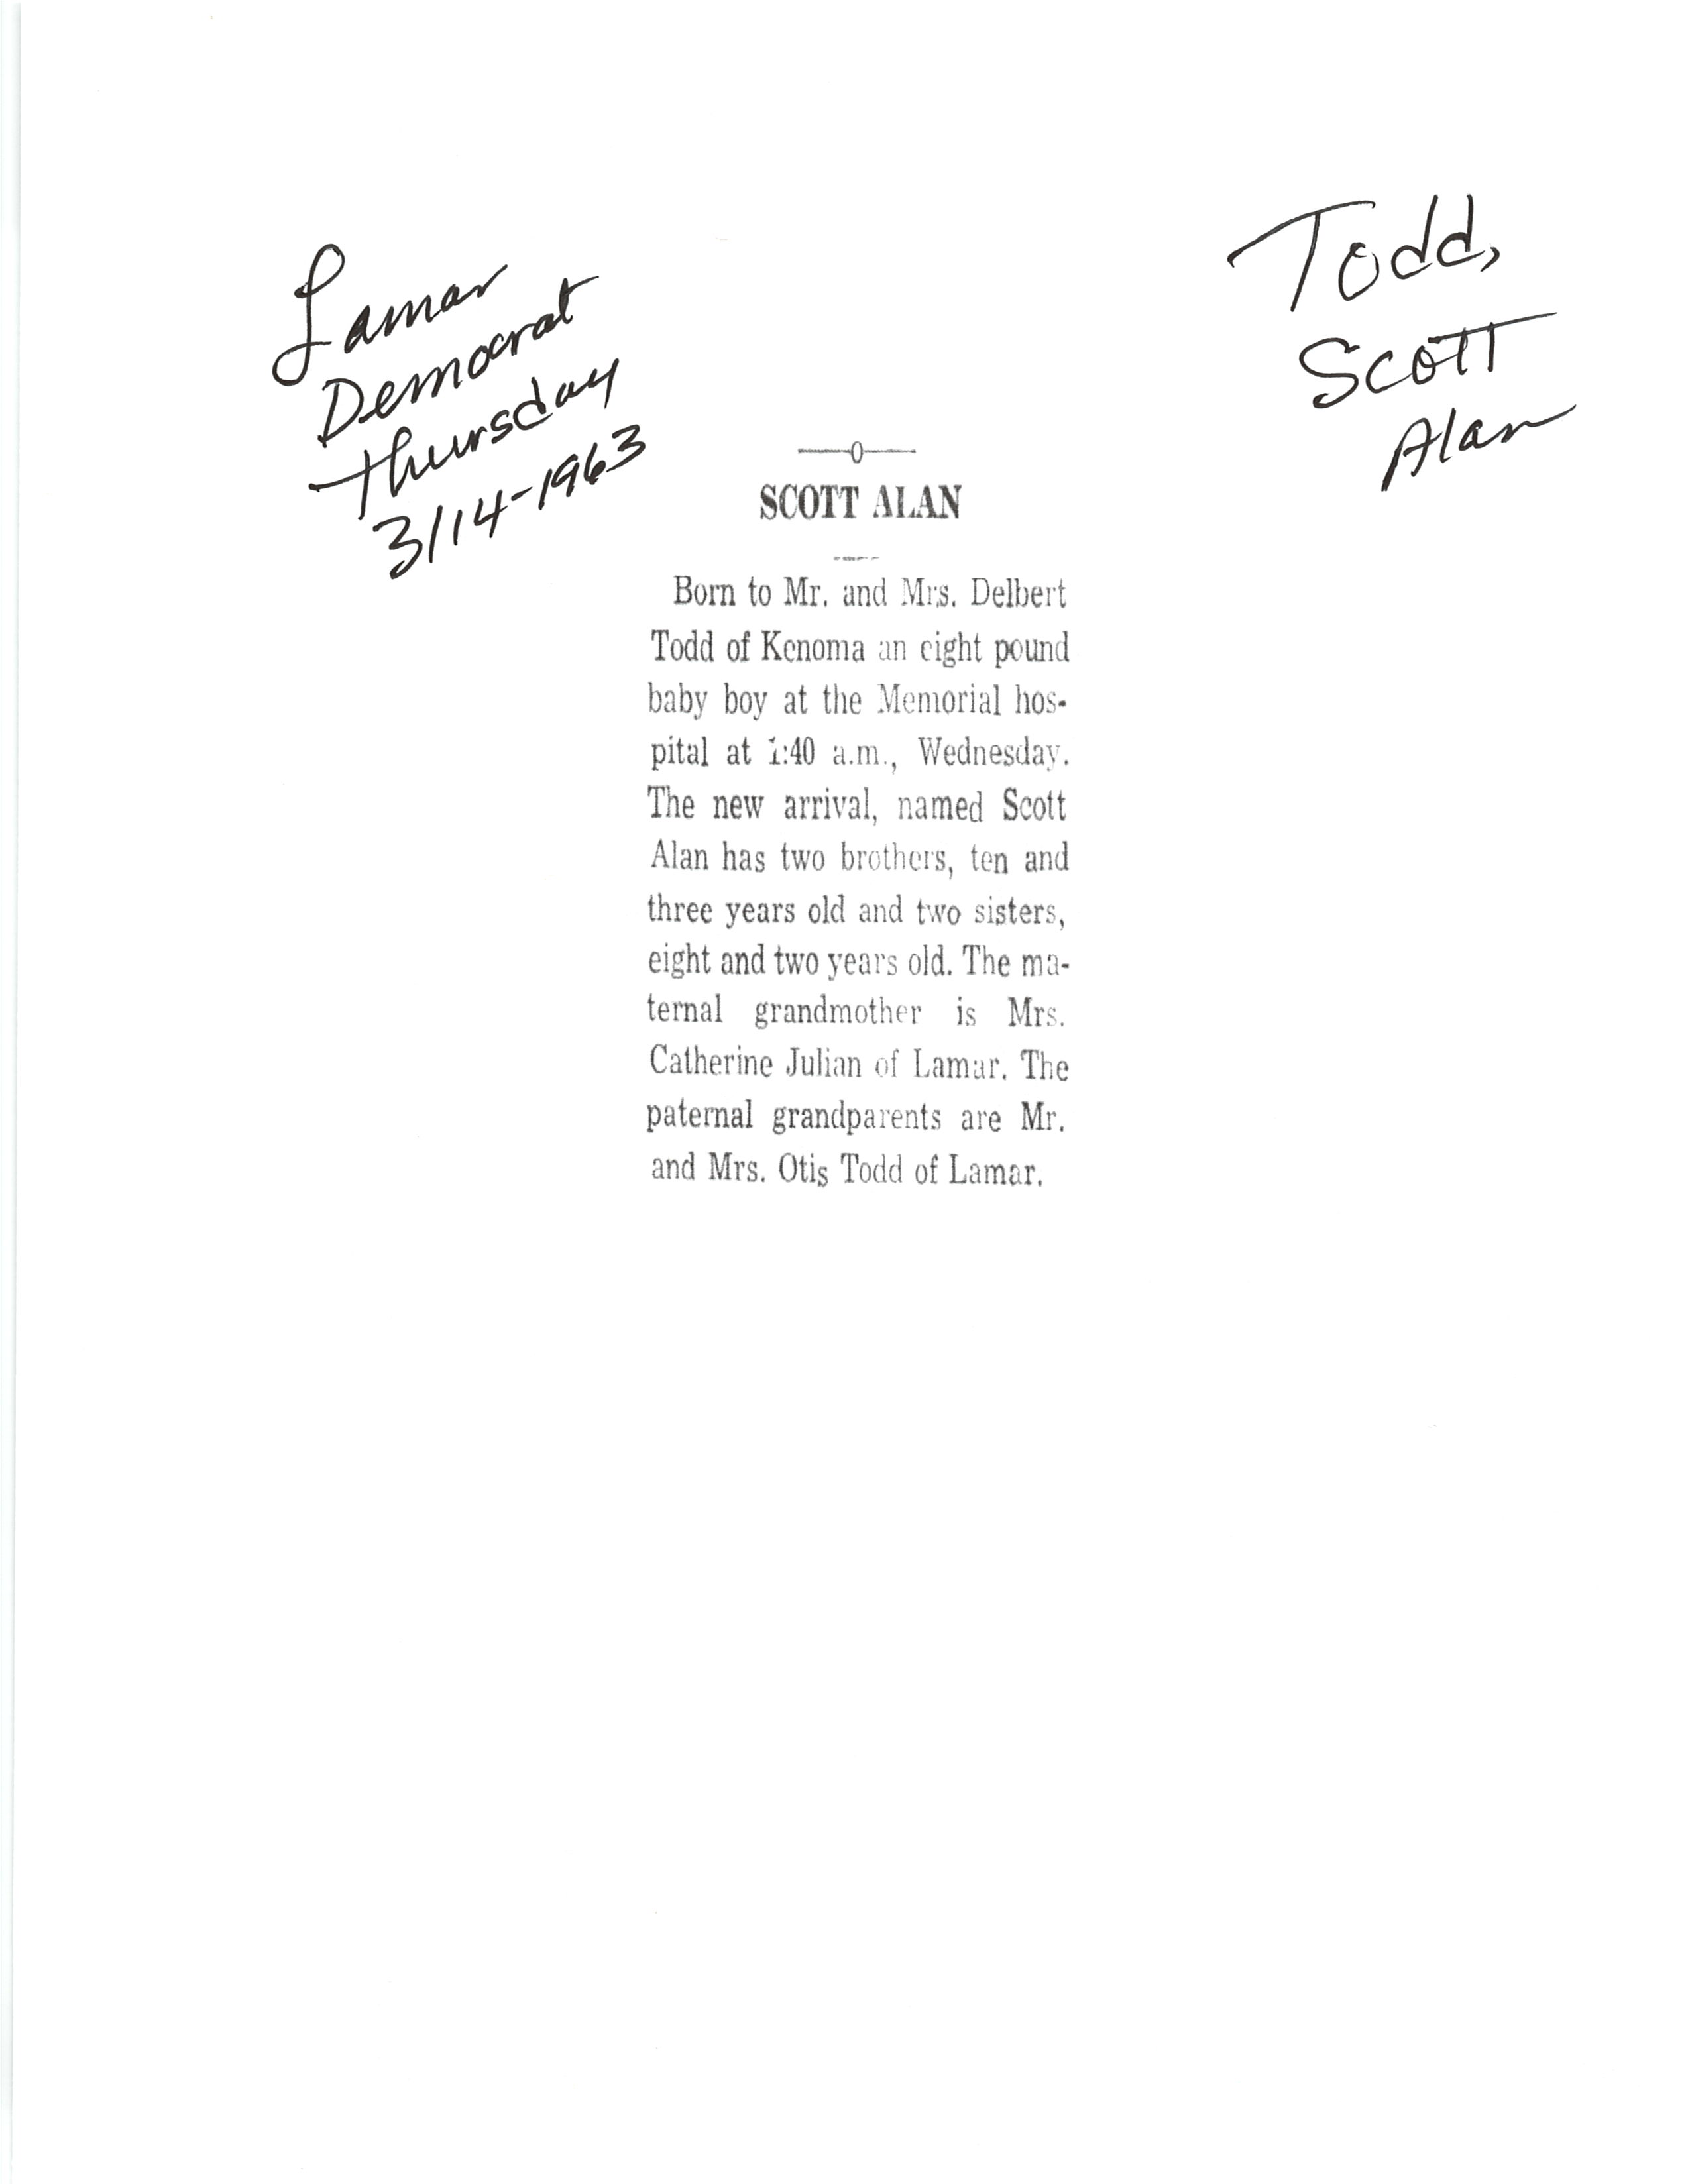 Lamar
Democrat
Thursday
3/14-1963
Todd,
Scott
Alan
SCOTT ALAN
Born to Mr. and Mrs. Delbert
Todd of Kenoma an eight pound
baby boy at the Memorial hos-
pital at 1:40 a.m., Wednesday.
The new arrival, named Scott
Alan has two brothers, ten and
three years old and two sisters,
eight and two years old. The ma-
ternal grandmother is Mrs.
Catherine Julian of Lamar. The
paternal grandparents are Mr.
and Mrs. Otis Todd of Lamar.